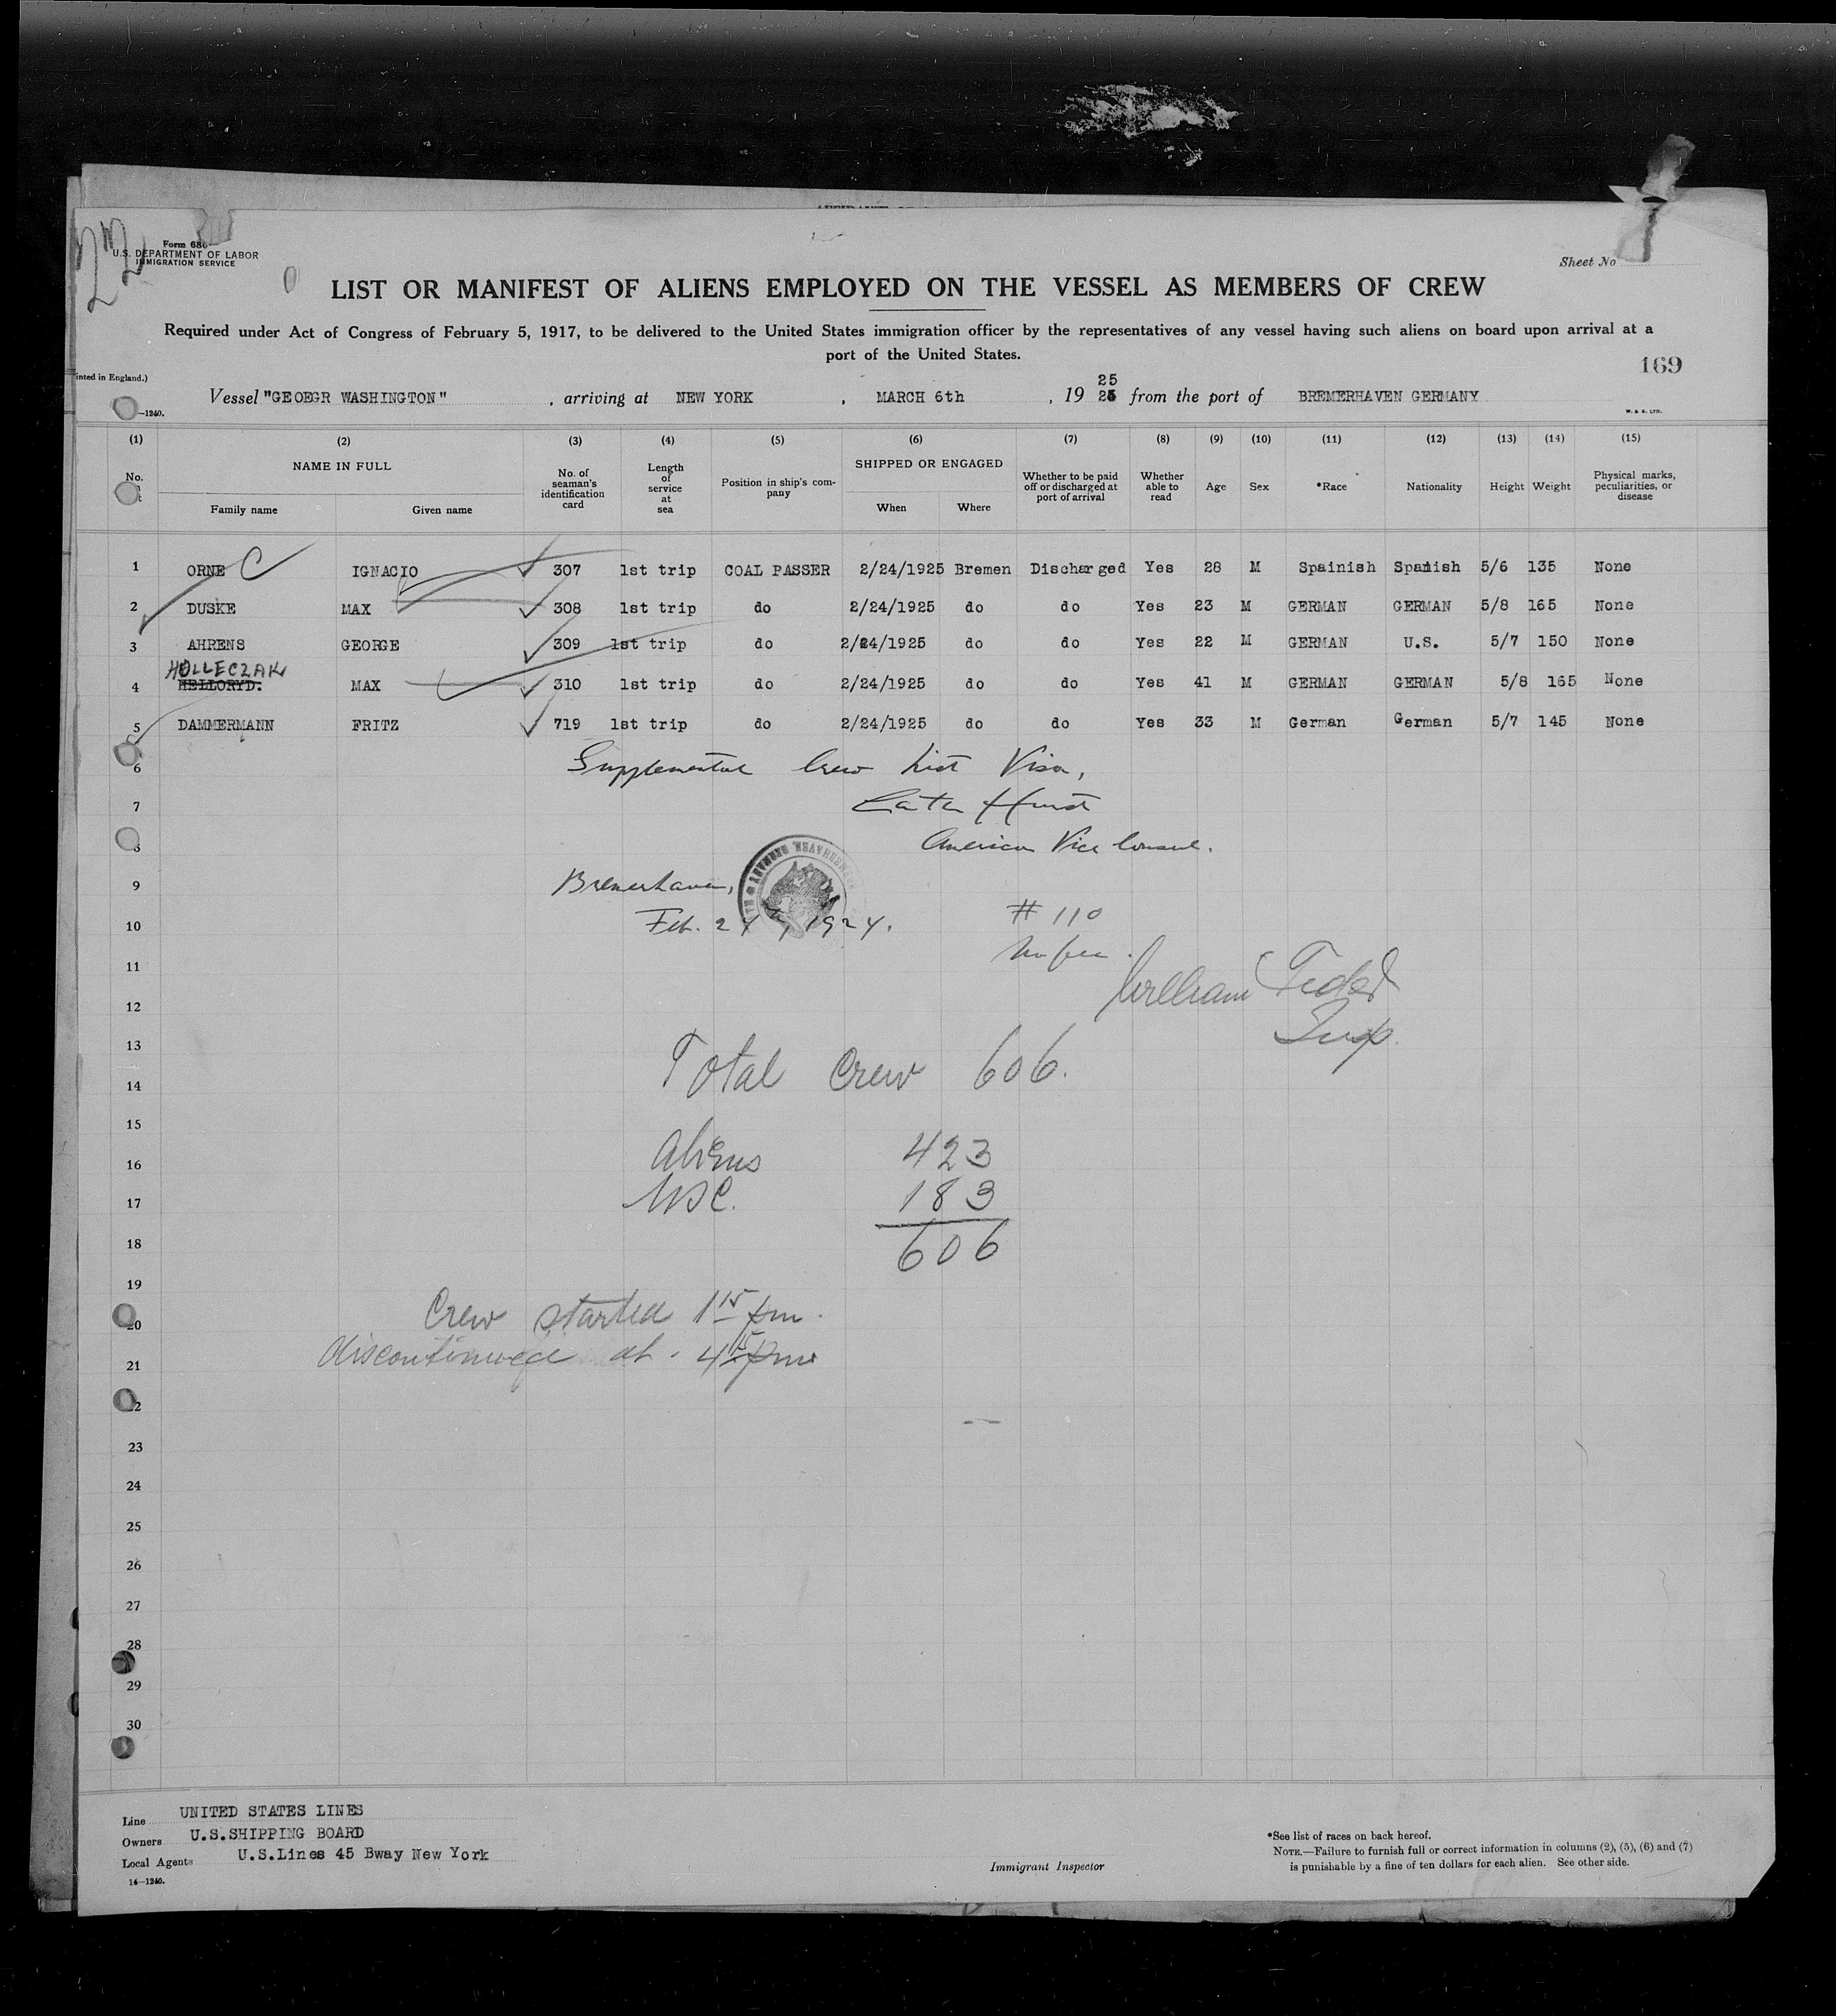 Form 680
U.S. DEPARTMENT OF LABOR
IMMIGRATION SERVICE
Sheet No
LIST OR MANIFEST OF ALIENS EMPLOYED ON THE VESSEL AS MEMBERS OF CREW
Required under Act of Congress of February 5, 1917, to be delivered to the United States immigration officer by the representatives of any vessel having such aliens on board upon arrival at a
port of the United States.
169
inted in England.)
Vessel "GEOEGR WASHINGTON", arriving at NEW YORK, MARCH 6th, 19 25 from the port of BREMERHAVEN GERMANY
—1240.
W. & S. LTD.
(1) (2) (3) (4) (5) (6) (7) (8) (9) (10) (11) (12) (13) (14) (15)
No. NAME IN FULL Family name Given name No. of seaman's identification card Length of service at sea Position in ship's company SHIPPED OR ENGAGED When Where Whether to be paid off or discharged at port of arrival Whether able to read Age Sex *Race Nationality Height Weight Physical marks, peculiarities, or disease
1 ORNE C IGNACIO 307 1st trip COAL PASSER 2/24/1925 Bremen Discharged Yes 28 M Spainish Spanish 5/6 135 None
2 DUSKE MAX 308 1st trip do 2/24/1925 do do Yes 23 M GERMAN GERMAN 5/8 165 None
3 AHRENS GEORGE 309 1st trip do 2/24/1925 do do Yes 22 M GERMAN U.S. 5/7 150 None
HOLLECZAK
4 HELLORYD. MAX 310 1st trip do 2/24/1925 do do Yes 41 M GERMAN GERMAN 5/8 165 None
5 DAMMERMANN FRITZ 719 1st trip do 2/24/1925 do do Yes 33 M German German 5/7 145 None
6 Supplemental Crew List Visa,
7 Hurst
8 American Vice Consul.
9 Bremerhaven,
10 Feb. 24, 1924. #110
11 No fee.
12 William
13 Insp.
14 Total Crew 606.
15
16 Aliens 423
17 USC. 183
18 606
19
20 Crew started 1 15 pm.
21 discontinued at. 4 15 pm
22
23
24
25
26
27
28
29
30
Line UNITED STATES LINES
Owners U.S.SHIPPING BOARD
Local Agents U.S.Lines 45 Bway New York
14—1240.
Immigrant Inspector
*See list of races on back hereof.
NOTE.—Failure to furnish full or correct information in columns (2), (5), (6) and (7)
is punishable by a fine of ten dollars for each alien. See other side.